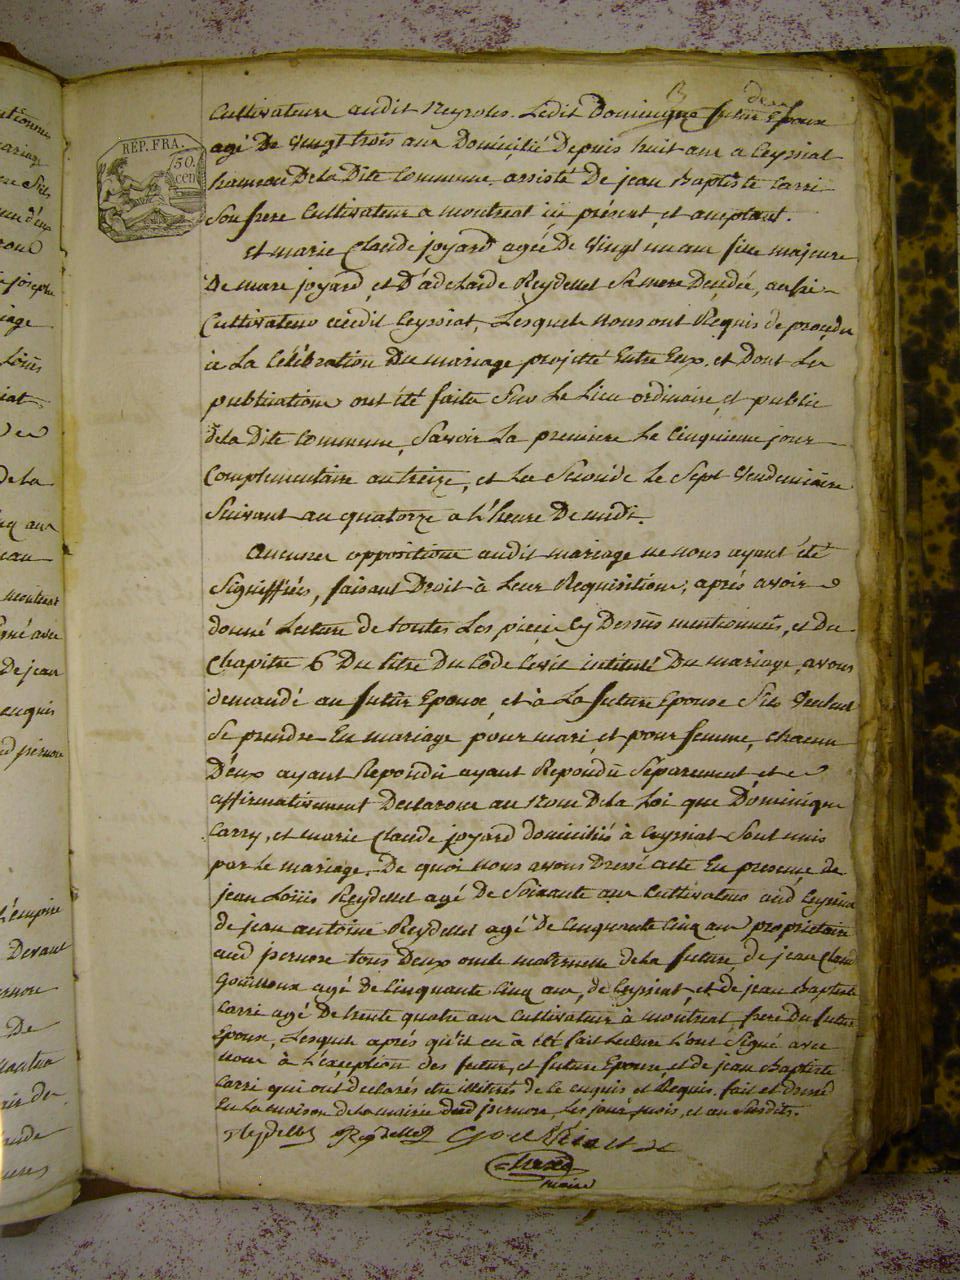 REP. FRA.
50
cen
Cultivateur audit Neyroles. Ledit Dominique futur Epoux
agé De vingt trois ans Domicilié Depuis huit ans a Ceyssiat
hameau De la Dite Commune. assisté De jean baptiste Carri
Son frere Cultivateur a montreal ici présent, et acceptant.
Et marie Claude joyard agée De vingt un ans fille majeure
De marc joyard, et D'adelaide Reydellet Sa mere Décédée, aussi
Cultivateur Ceyssiat, Lesquels Nous ont Requis de procéder
à La Célébration Du mariage projetté Entre Eux. et Dont Les
publications ont été faites Sur Le Lieu ordinaire, et public
de la Dite Commune, Savoir La premiere Le Cinquieme jour
Complementaire an treize, et La Seconde le Sept Vendemiaire
Suivant an quatorze a L'heure De midi.
Aucunes oppositions audit mariage ne nous ayant été
Signiffiées, faisant Droit à Leur Requisitions; aprés avoir
donné Lecture de toutes Les pieces Cy Dessus mentionnées, et Du
Chapitre 6 Du titre Du Code Civil intitulé Du mariage, avons
demandé au futur Epoux, et à La future Epouse Sils Veulent
Se prendre En mariage pour mari, et pour femme, chacun
D'eux ayant Repondu ayant Repondu Séparement, et
affirmativement Declarons au Nom De la Loi que Dominique
Carry, et marie Claude joyard domiciliés à Ceyssiat Sont unis
par le mariage. De quoi Nous avons Dressé acte En presence de
jean Loüis Reydellet agé de Soixante ans Cultivateur aud Ceyssiat
de jean antoine Reydellet agé De Cinquante Cinq ans proprietaire
aud pernore tous Deux oncle maternelle de la future, de jean Claud
Goüilloux agé de Cinquante Cinq ans, de Ceyssiat, et de jean baptiste
Carri agé De trente quatre ans Cultivateur à montreal, frere Du futur
Epoux, Lesquels aprés qu'il en à été fait Lecture L'ont Signé avec
nous à L'exception des futur, et future Epouse, et de jean baptiste
Carri qui ont déclarés etre illitérés de ce enquis et Requis. fait et dressé
En la maison De la mairie dud pernore, Les jour, mois, et an Susdits.
Reydellet Reydellet
maire